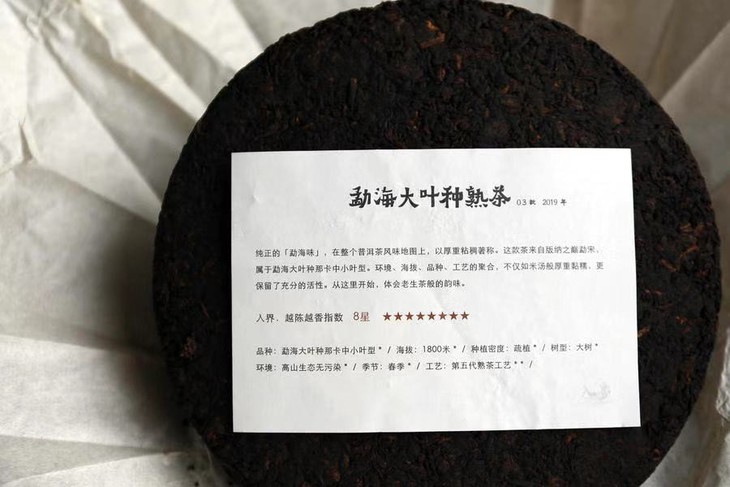 勐海大叶种熟茶 03款 2019年
纯正的「勐海味」，在整个普洱茶风味地图上，以厚重粘稠著称。这款茶来自版纳之巅勐宋，
属于勐海大叶种那卡中小叶型。环境、海拔、品种、工艺的聚合，不仅如米汤般厚重黏糯，更
保留了充分的活性。从这里开始，体会老生茶般的韵味。
人界．越陈越香指数 8星 ★★★★★★★★
品种：勐海大叶种那卡中小叶型* / 海拔：1800米* / 种植密度：疏植* / 树型：大树*
环境：高山生态无污染* / 季节：春季* / 工艺：第五代熟茶工艺** /